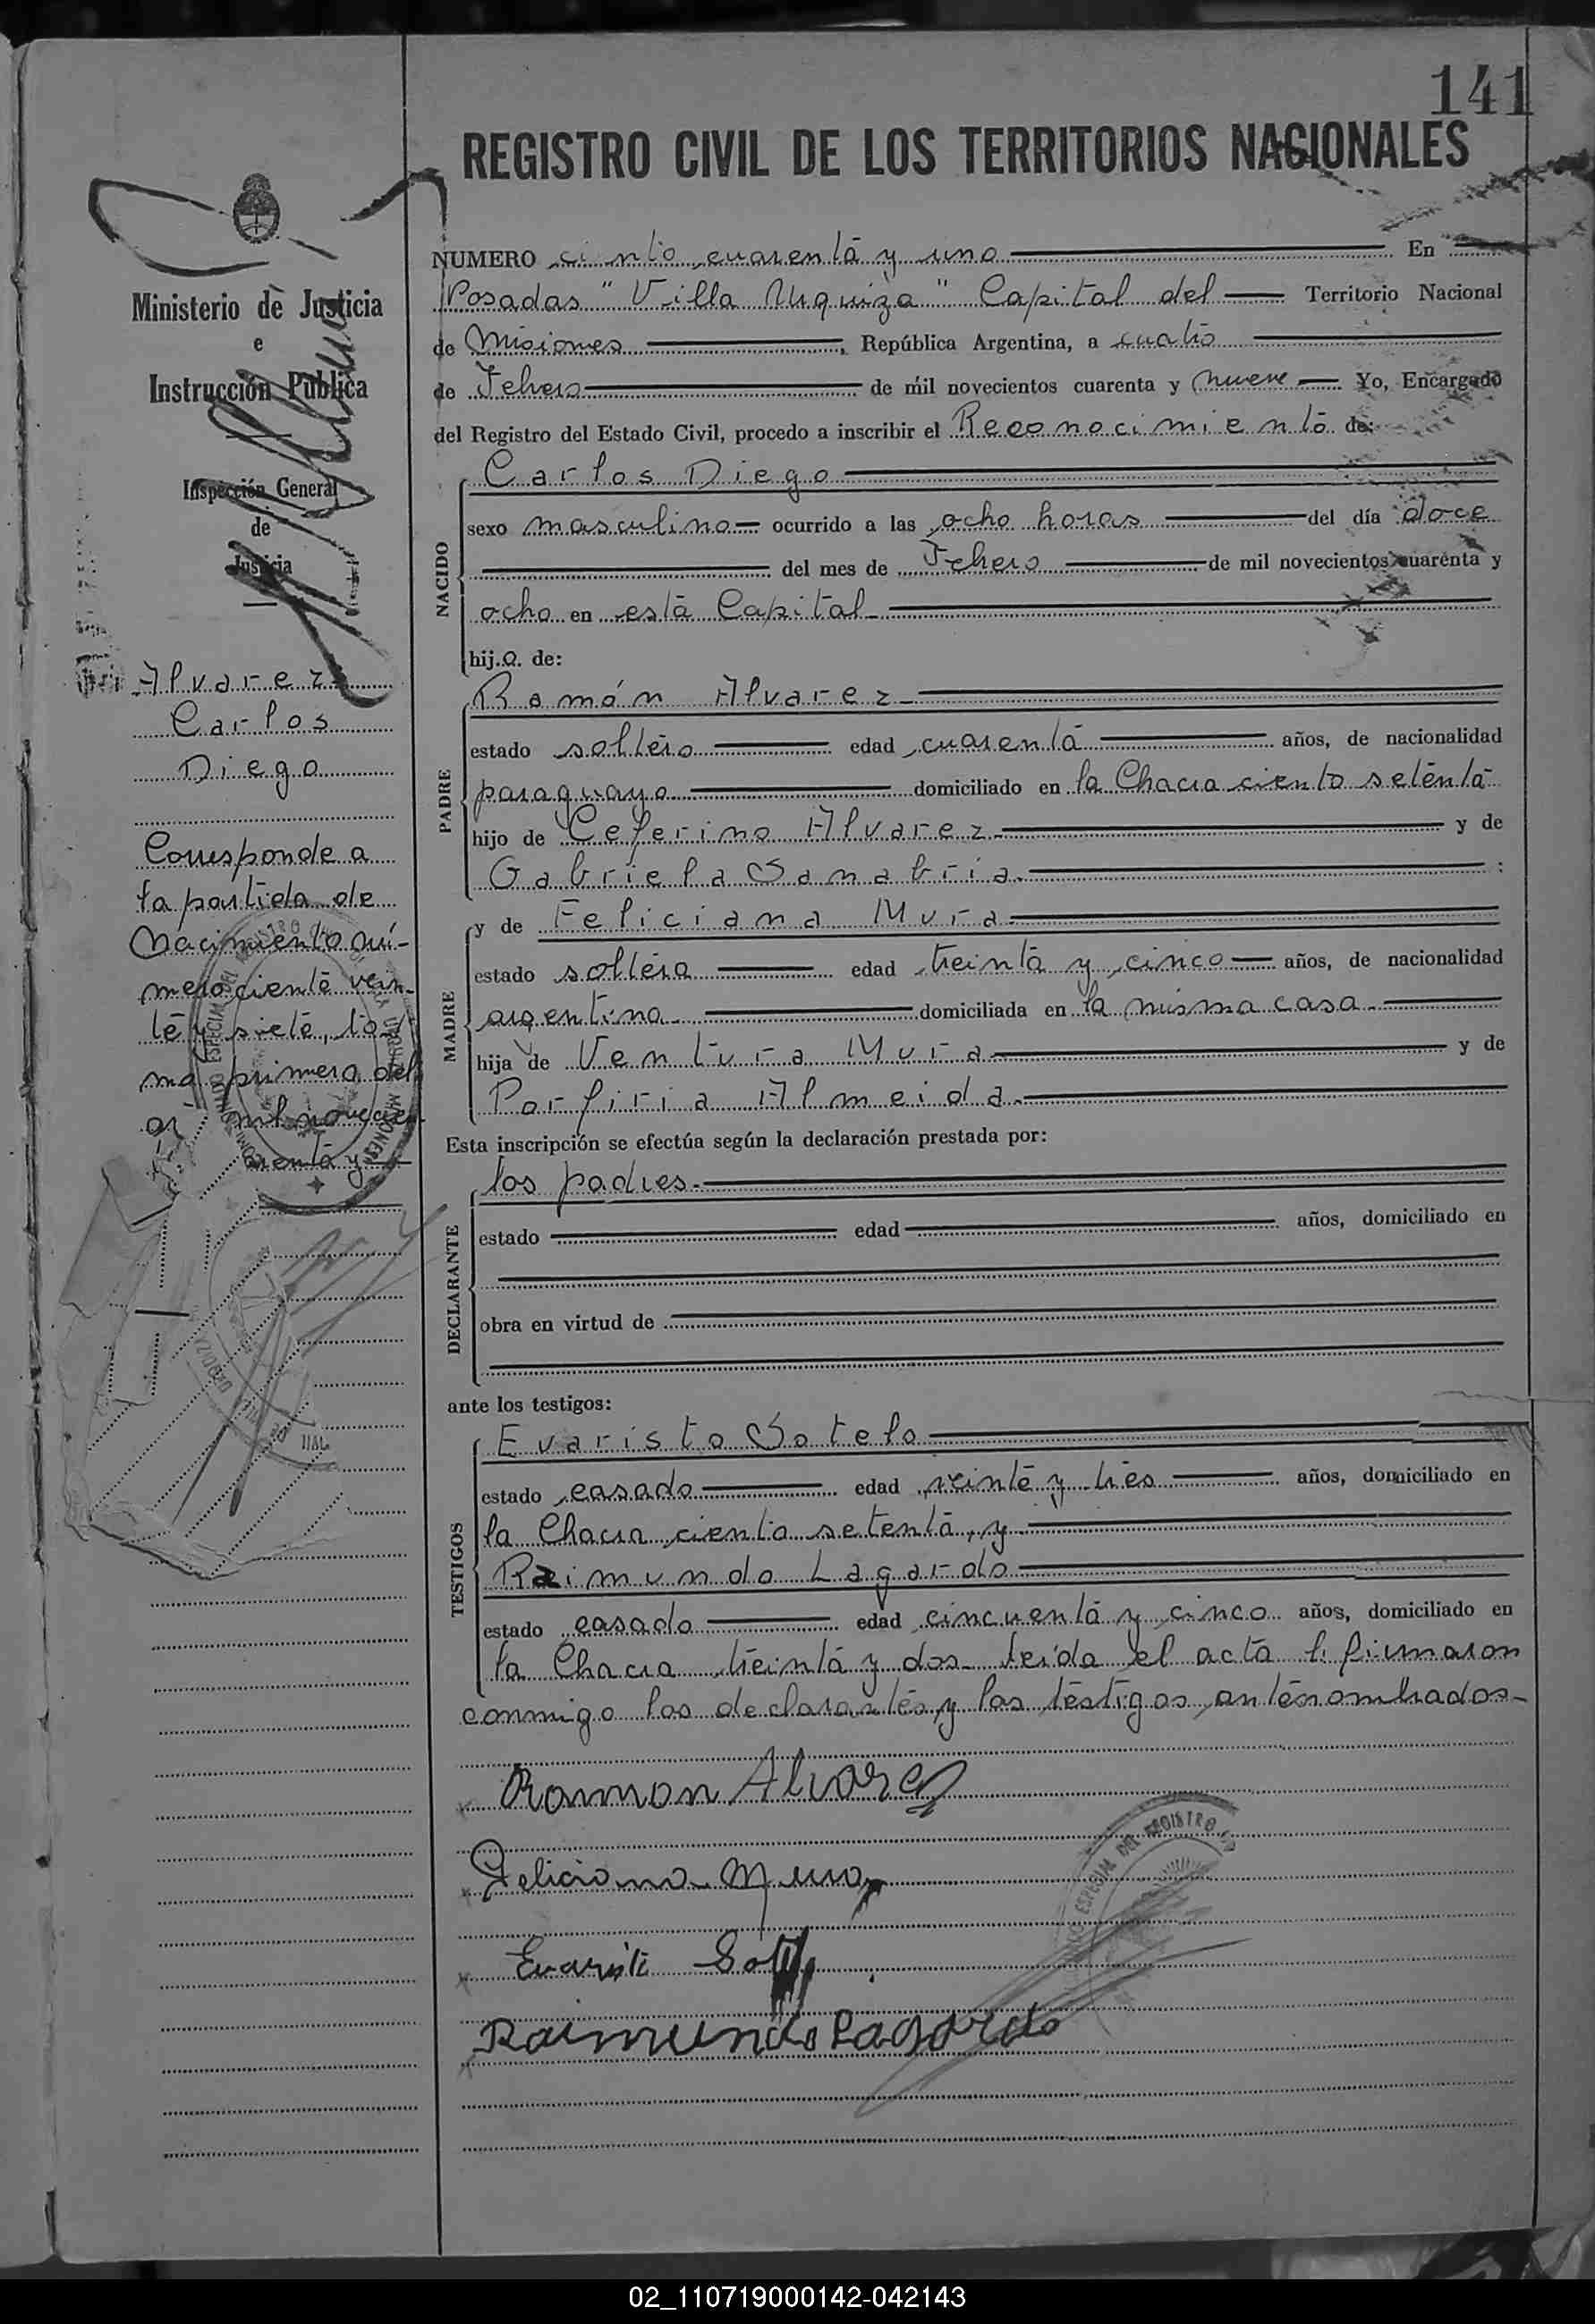 141
REGISTRO CIVIL DE LOS TERRITORIOS NACIONALES
Ministerio de Justicia
e
Instrucción Pública
Inspección General
de
Justicia
Alvarez
Carlos
Diego
Corresponde a
la partida de
Nacimiento nú-
mero ciento vein-
te y siete, to-
mo primero del
mil novecien
renta y
NUMERO ciento cuarenta y uno En
Posadas "Villa Urquiza" Capital del Territorio Nacional
de Misiones, República Argentina, a cuatro
de Febrero de mil novecientos cuarenta y nueve Yo, Encargado
del Registro del Estado Civil, procedo a inscribir el Reconocimiento de:
NACIDO
Carlos Diego
sexo masculino ocurrido a las ocho horas del día doce
del mes de Febrero de mil novecientos cuarenta y
ocho en esta Capital
hijo de:
PADRE
Ramón Alvarez
estado soltero edad cuarenta años, de nacionalidad
paraguayo domiciliado en la Chacra ciento setenta
hijo de Ceferino Alvarez y de
Gabriela Sanabria :
MADRE
y de Feliciana Mura
estado soltera edad treinta y cinco años, de nacionalidad
argentina domiciliada en la misma casa
hija de Ventura Mura y de
Porfiria Almeida
Esta inscripción se efectúa según la declaración prestada por:
DECLARANTE
los padres
estado edad años, domiciliado en
obra en virtud de
ante los testigos:
TESTIGOS
Evaristo Sotelo
estado casado edad veinte y tres años, domiciliado en
la Chacra ciento setenta, y
Raimundo Lagardo
estado casado edad cincuenta y cinco años, domiciliado en
la Chacra treinta y dos Leida el acta la firmaron
conmigo los declarantes y los testigos antenombrados
Ramon Alvarez
Feliciana Mura
Raimundo Lagardo
02_110719000142-042143